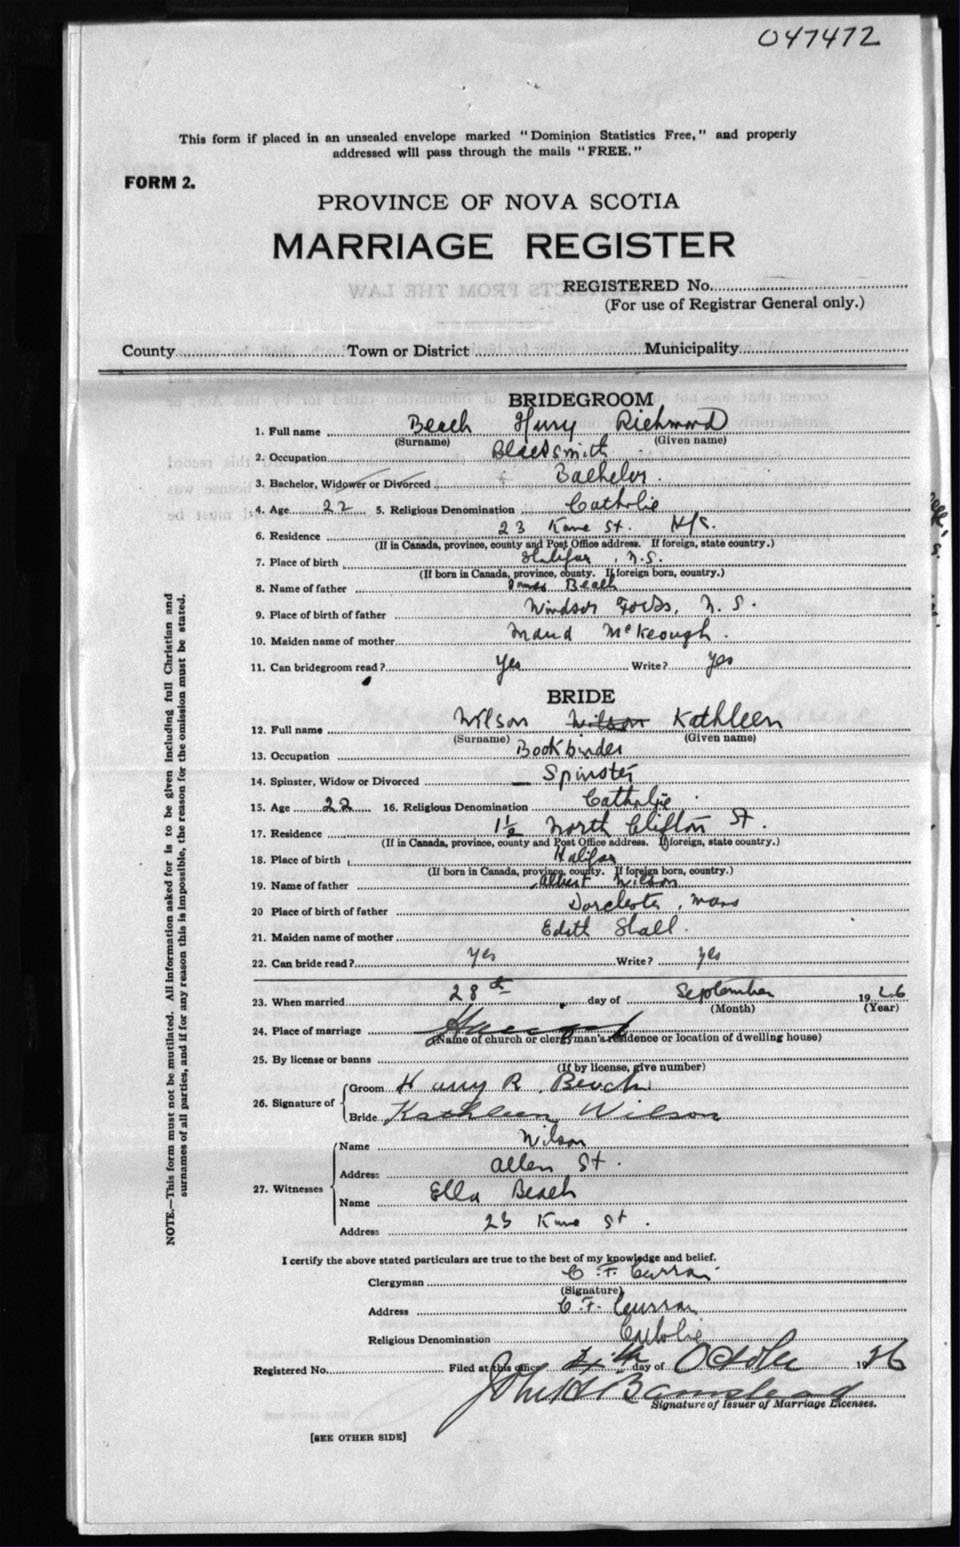 047472
This form if placed in an unsealed envelope marked "Dominion Statistics Free," and properly
addressed will pass through the mails "FREE."
FORM 2.
PROVINCE OF NOVA SCOTIA
MARRIAGE REGISTER
REGISTERED No.
(For use of Registrar General only.)
County Town or District Municipality
BRIDEGROOM
1. Full name Beach Harry Richmond
(Surname) (Given name)
2. Occupation Blacksmith
3. Bachelor, Widower or Divorced Bachelor
4. Age 22 5. Religious Denomination Catholic
6. Residence 23 Kane St. Hfx.
(If in Canada, province, county and Post Office address. If foreign, state country.)
7. Place of birth Halifax, N.S.
(If born in Canada, province, county. If foreign born, country.)
8. Name of father James Beach
9. Place of birth of father Windsor Forks, N. S.
10. Maiden name of mother Maud McKeough.
11. Can bridegroom read? Yes Write? Yes
BRIDE
12. Full name Wilson Wilson Kathleen
(Surname) (Given name)
13. Occupation Bookbinder
14. Spinster, Widow or Divorced Spinster
15. Age 22 16. Religious Denomination Catholic
17. Residence 1½ North Clifton St.
(If in Canada, province, county and Post Office address. If foreign, state country.)
18. Place of birth Halifax
(If born in Canada, province, county. If foreign born, country.)
19. Name of father Albert Wilson
20 Place of birth of father Dorchester, Mass
21. Maiden name of mother Edith
22. Can bride read? Yes Write? Yes
23. When married 28th day of September 1926
(Month) (Year)
24. Place of marriage
(Name of church or clergyman's residence or location of dwelling house)
25. By license or banns
(If by license, give number)
26. Signature of Groom Harry R. Beach
Bride Kathleen Wilson
27. Witnesses
Name Wilson
Address Allen St.
Name Ella Beach
Address 23 Kane St.
I certify the above stated particulars are true to the best of my knowledge and belief.
Clergyman C. F. Curran
(Signature)
Address C. F. Curran
Religious Denomination Catholic
Registered No. Filed at this office 4th day of October 1926
John H Barnstead
Signature of Issuer of Marriage Licenses.
[SEE OTHER SIDE]
NOTE.—This form must not be mutilated. All information asked for is to be given including full Christian and
surnames of all parties, and if for any reason this is impossible, the reason for the omission must be stated.